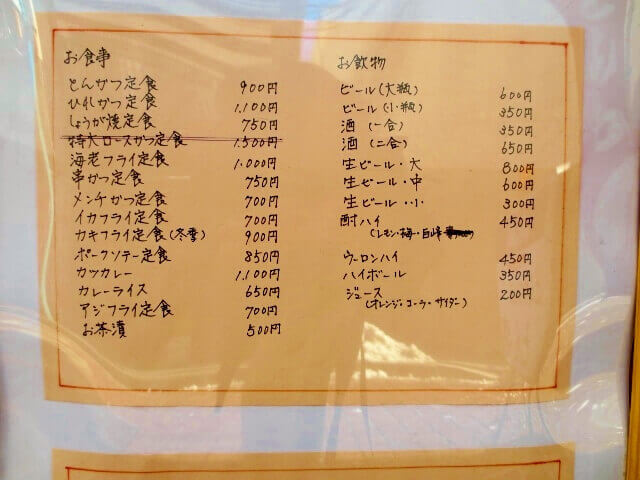 お食事
とんかつ定食 900円
ひれかつ定食 1.100円
しょうが焼定食 750円
特大ロースかつ定食 1.500円
海老フライ定食 1.000円
串かつ定食 750円
メンチかつ定食 700円
イカフライ定食 700円
カキフライ定食(冬季) 900円
ポークソテー定食 850円
カツカレー 1.100円
カレーライス 650円
アジフライ定食 700円
お茶漬 500円
お飲物
ビール(大瓶) 600円
ビール(小瓶) 350円
酒(一合) 350円
酒(二合) 650円
生ビール・大 800円
生ビール・中 600円
生ビール・小 300円
酎ハイ 450円
(レモン・梅・巨峰)
ウーロンハイ 450円
ハイボール 350円
ジュース 200円
(オレンジ・コーラ・サイダー)